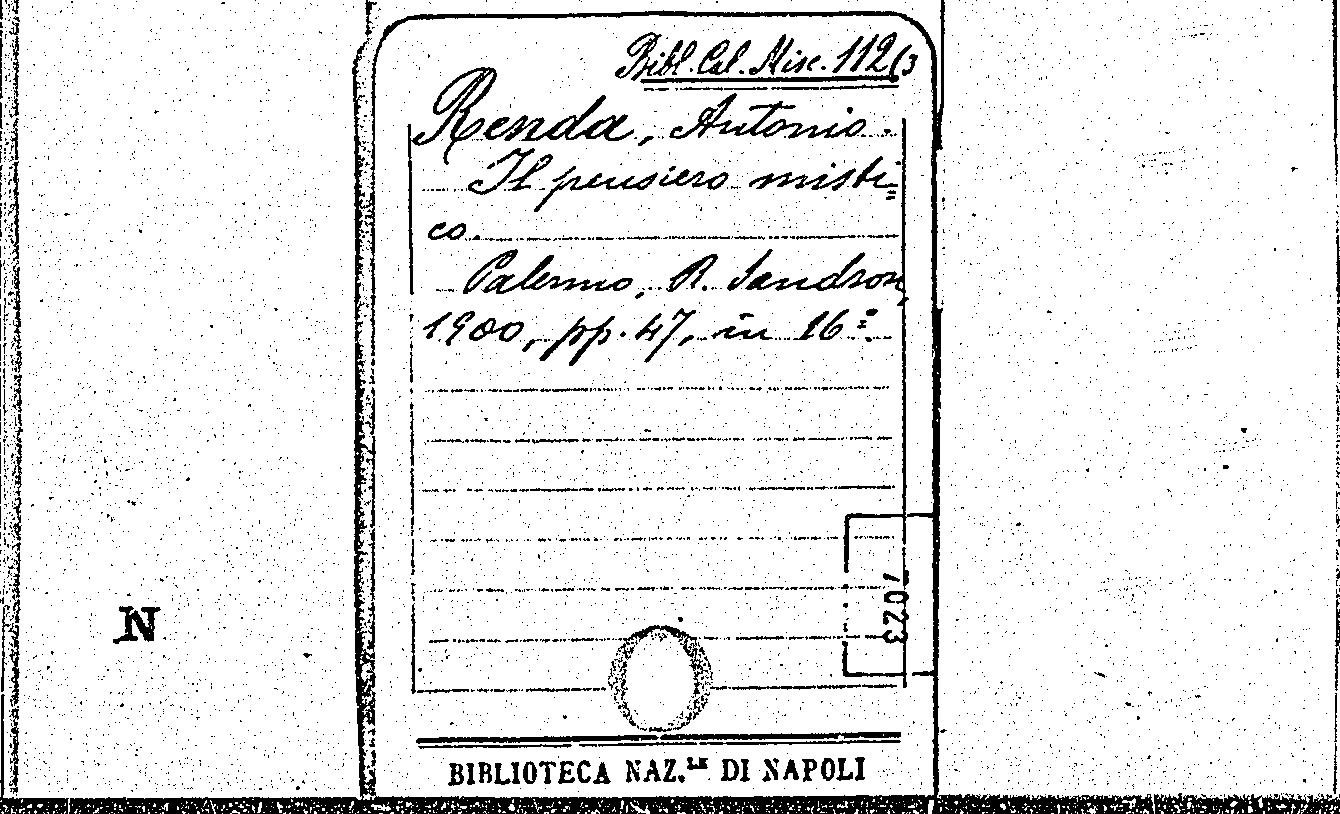 Bibl. Cal. Misc. 112(3
Renda, Antonio.
Il pensiero misti=
co.
Palermo, R. Sandron,
1900, pp. 47, in 16º.
7023
N
BIBLIOTECA NAZ.LE DI NAPOLI